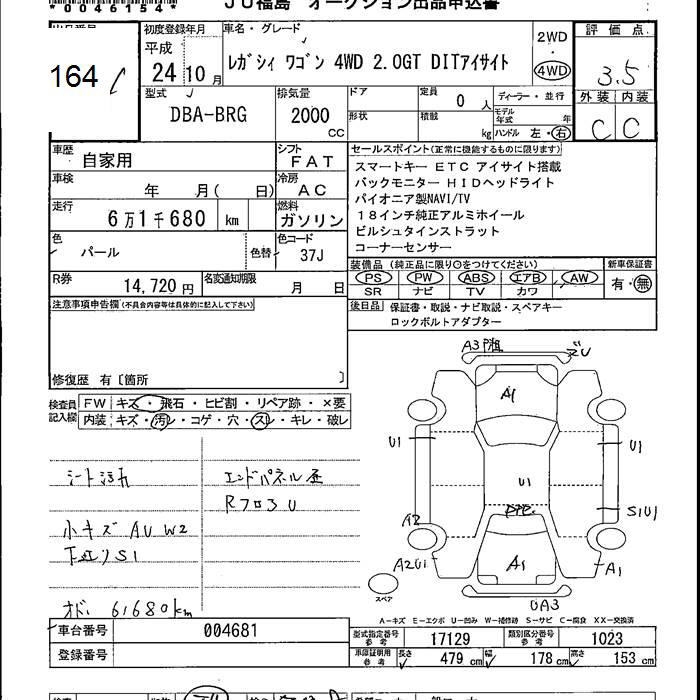 *0046154*
JU福島 オークション出品申込書
164
初度登録年月
平成
24 10 月
車名・グレード
レガシィ ワゴン 4WD 2.0GT DITアイサイト
2WD
4WD
評価点
3.5
外装 内装
C C
型式
DBA-BRG
排気量
2000
CC
ドア
形状
定員
0 人
積載
kg
ディーラー・並行
モデル年式 年
ハンドル 左・右
車歴
自家用
シフト
FAT
車検
年 月( 日)
冷房
AC
走行
6万1千680 km
燃料
ガソリン
色
パール
色替
色コード
37J
R券
14,720円
名変通知期限
月 日
セールスポイント(正常に機能するものに限ります)
スマートキー ETC アイサイト搭載
バックモニター HIDヘッドライト
パイオニア製NAVI/TV
18インチ純正アルミホイール
ビルシュタインストラット
コーナーセンサー
装備品(純正品に限り○をつけてください)
PS PW ABS エアB AW
SR ナビ TV カワ
新車保証書
有・無
後日品
保証書・取説・ナビ取説・スペアキー
ロックボルトアダプター
注意事項申告欄(不具合内容等は具体的に記入して下さい)
修復歴 有〔箇所 〕
検査員記入欄
FW キズ・飛石・ヒビ割・リペア跡・×要
内装 キズ・汚レ・コゲ・穴・スレ・キレ・破レ
シート汚れ
エンドパネル歪
Rフロア U
小キズ AU W2
下廻りS1
オド 61680km
A3
A1
U1
U1
U1
A2
S1U1
A2U1
A1
A1
UA3
スペア
A-キズ E-エクボ U-凹み W-補修跡 S-サビ C-腐食 XX-交換済
車台番号
004681
登録番号
型式指定番号参考
17129
類別区分番号参考
1023
車庫証明用参考
長さ 479 cm
幅 178 cm
高さ 153 cm